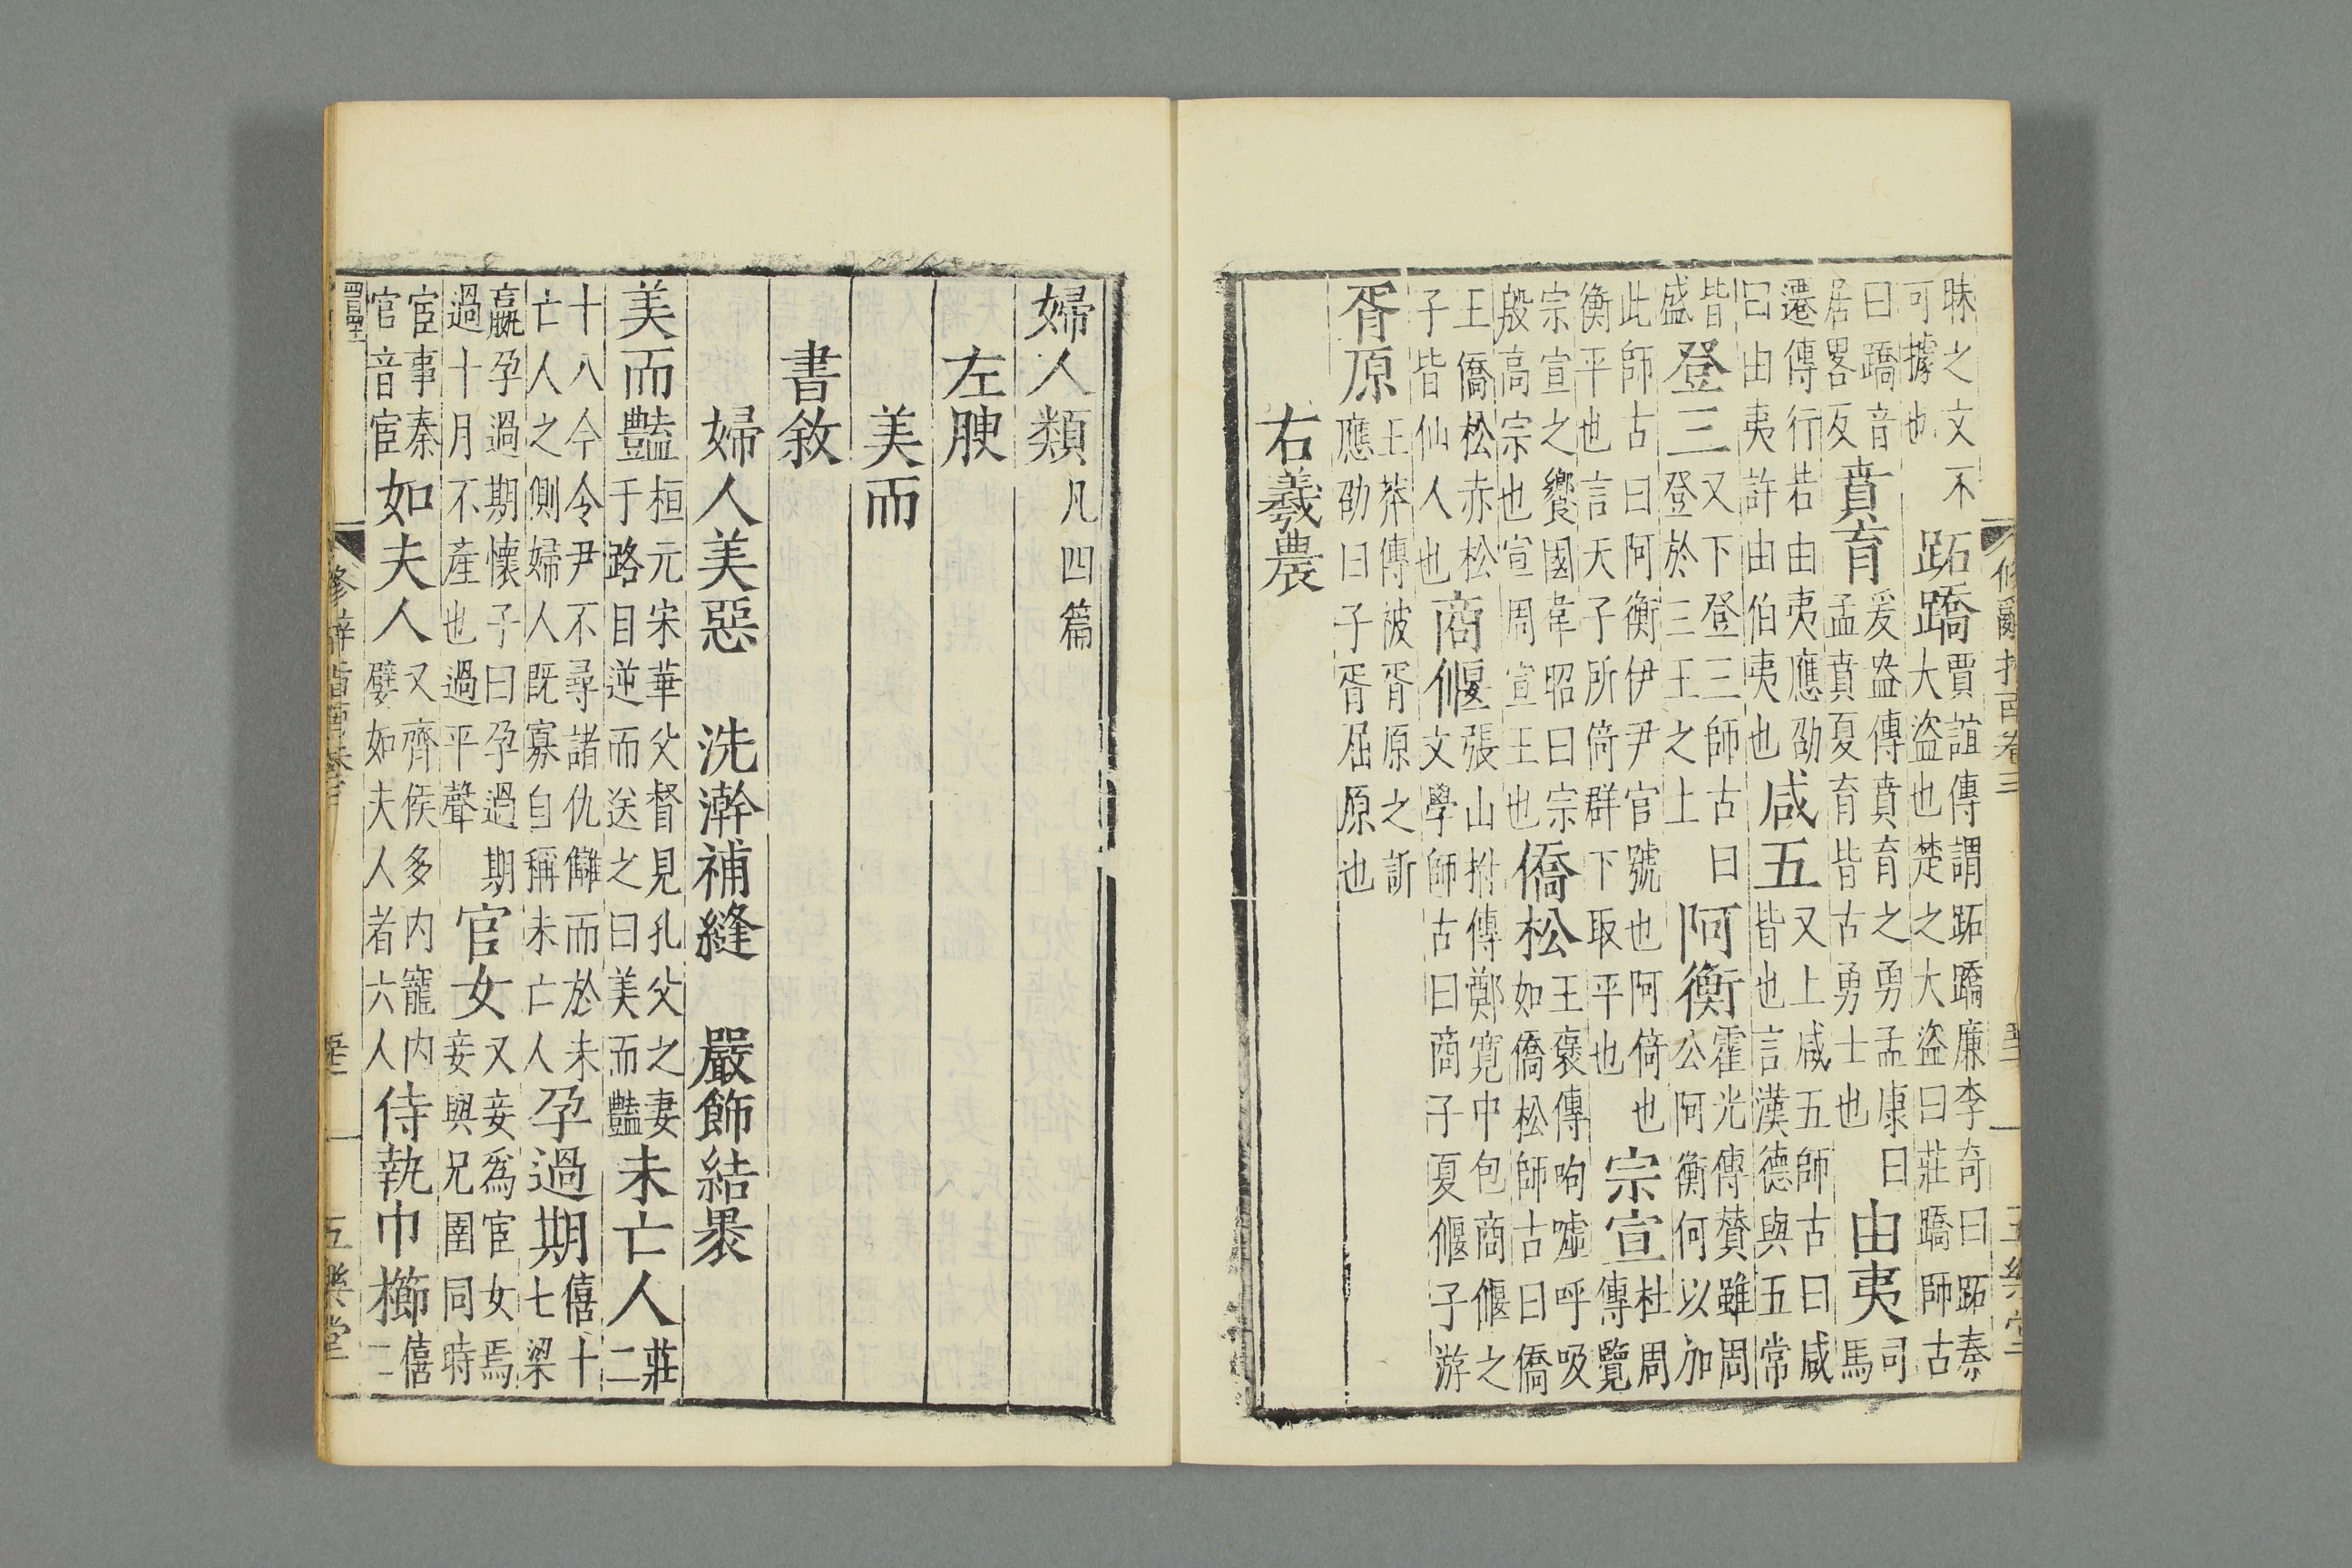 修辭指南卷三 五樂堂
昧之文不
可據也
跖蹻
賈誼傳謂跖蹻廉李奇曰跖秦
大盗也楚之大盗曰莊蹻師古
曰蹻音
居畧反
賁育
爰盎傳賁育之勇孟康曰
孟賁夏育皆古勇士也
由夷
司
馬
遷傳行若由夷應劭
曰由夷許由伯夷也
咸五
又上咸五師古曰咸
皆也言漢德與五常
皆
盛
登三
又下登三師古曰
登於三王之上
阿衡
霍光傳賛雖周
公阿衡何以加
此師古曰阿衡伊尹官號也阿倚也
衡平也言天子所倚群下取平也
宗宣
杜周
傳覽
宗宣之饗國韋昭曰宗
殷高宗也宣周宣王也
僑松
王襃傳呴嘘呼吸
如僑松師古曰僑
王僑松赤松
子皆仙人也
商偃
張山拊傳鄭寛中包商偃之
文學師古曰商子夏偃子游
胥原
王莽傳被胥原之訴
應劭曰子胥屈原也
右羲農
婦人類 凡四篇
左腴
美而
書敘
婦人美惡 洗澣補縫 嚴飾結褁
美而豔
桓元宋華父督見孔父之妻
于路目逆而送之曰美而豔
未亡人
莊
二
十八今令尹不尋諸仇讎而於未
亡人之側婦人既寡自稱未亡人
孕過期
僖十
七梁
嬴孕過期懷子曰孕過期
過十月不產也過平聲
宦女
又妾爲宦女焉
妾與兄圉同時
宦事秦
官音宦
如夫人
又齊侯多内寵内
嬖如夫人者六人
侍執巾櫛
僖
二
修辭指南卷三 五樂堂